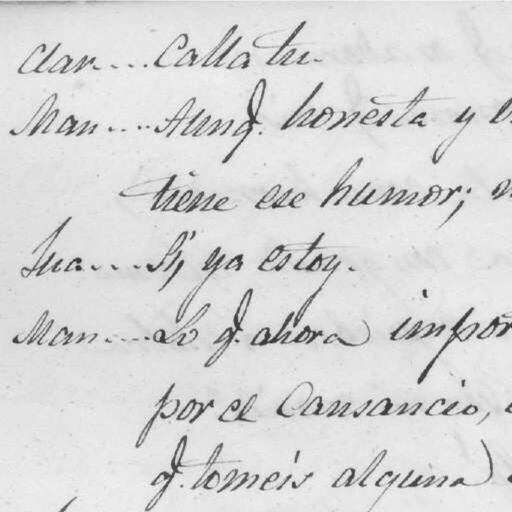 Clar.... Calla tu.
Man.... Aunq. honesta y
tiene ese humor;
Jua.... Si, ya estoy.
Man.... Lo q. ahora impor
por el Cansancio,
q. tomeis alguna